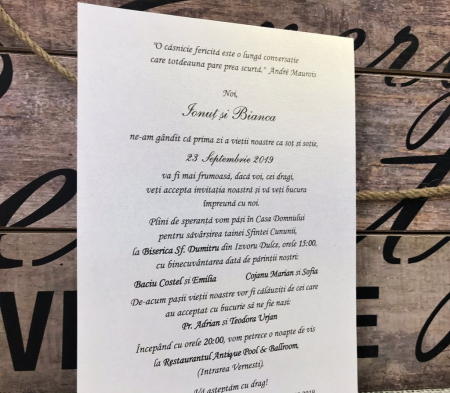 "O căsnicie fericită este o lungă conversație
care totdeauna pare prea scurtă." André Maurois
Noi,
Ionuț și Bianca
ne-am gândit că prima zi a vieții noastre ca soț și soție,
23 Septembrie 2019
va fi mai frumoasă, dacă voi, cei dragi,
veți accepta invitația noastră și vă veți bucura
împreună cu noi.
Plini de speranță vom păși în Casa Domnului
pentru săvârșirea tainei Sfintei Cununii,
la Biserica Sf. Dumitru din Izvoru Dulce, orele 15:00,
cu binecuvântarea dată de părinții noștri:
Baciu Costel și Emilia Cojanu Marian și Sofia
De-acum pașii vieții noastre vor fi călăuziți de cei care
au acceptat cu bucurie să ne fie nași:
Pr. Adrian și Teodora Urjan
Începând cu orele 20:00, vom petrece o noapte de vis
la Restaurantul Antique Pool & Ballroom,
(Intrarea Vernești).
Vă așteptăm cu drag!
2019